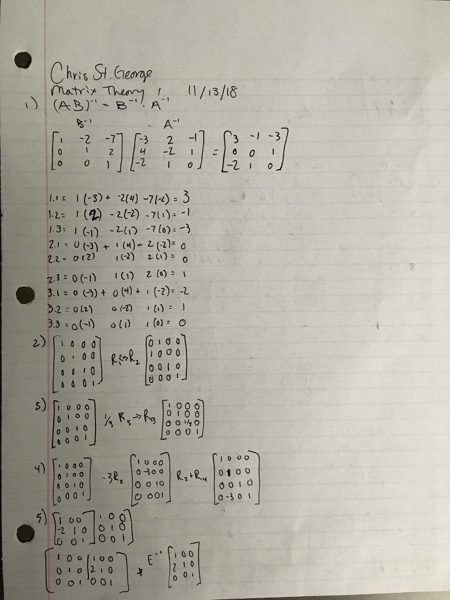 Chris St. George
Matrix Theory 1 11/13/18
1) (AB)⁻¹ = B⁻¹ · A⁻¹
B⁻¹ A⁻¹
[1 -2 -7] [-3 2 -1] = [3 -1 -3]
[0 1 2] [4 -2 1] [0 0 1]
[0 0 1] [-2 1 0] [-2 1 0]
1.1 = 1(-3) + -2(4) -7(-2) = 3
1.2 = 1(2) -2(-2) -7(1) = -1
1.3 = 1(-1) -2(1) -7(0) = -3
2.1 = 0(-3) + 1(4) + 2(-2) = 0
2.2 = 0(2) 1(-2) 2(1) = 0
2.3 = 0(-1) 1(1) 2(0) = 1
3.1 = 0(-3) + 0(4) + 1(-2) = -2
3.2 = 0(2) 0(-2) 1(1) = 1
3.3 = 0(-1) 0(1) 1(0) = 0
2) [1 0 0 0] [0 1 0 0]
[0 1 0 0] R₁↔R₂ [1 0 0 0]
[0 0 1 0] [0 0 1 0]
[0 0 0 1] [0 0 0 1]
3) [1 0 0 0] [1 0 0 0]
[0 1 0 0] R₃ → [0 1 0 0]
[0 0 1 0] [0 0 0]
[0 0 0 1] [0 0 0 1]
4) [1 0 0 0] [1 0 0 0] [1 0 0 0]
[0 1 0 0] -3R₂ [0 -3 0 0] R₂+R₄ [0 1 0 0]
[0 0 1 0] [0 0 1 0] [0 0 1 0]
[0 0 0 1] [0 0 0 1] [0 -3 0 1]
5) [1 0 0] [1 0 0]
[-2 1 0] [0 1 0]
[0 0 1] [0 0 1]
[1 0 0 | 1 0 0] E⁻¹ [1 0 0]
[0 1 0 | 2 1 0] [2 1 0]
[0 0 1 | 0 0 1] [0 0 1]